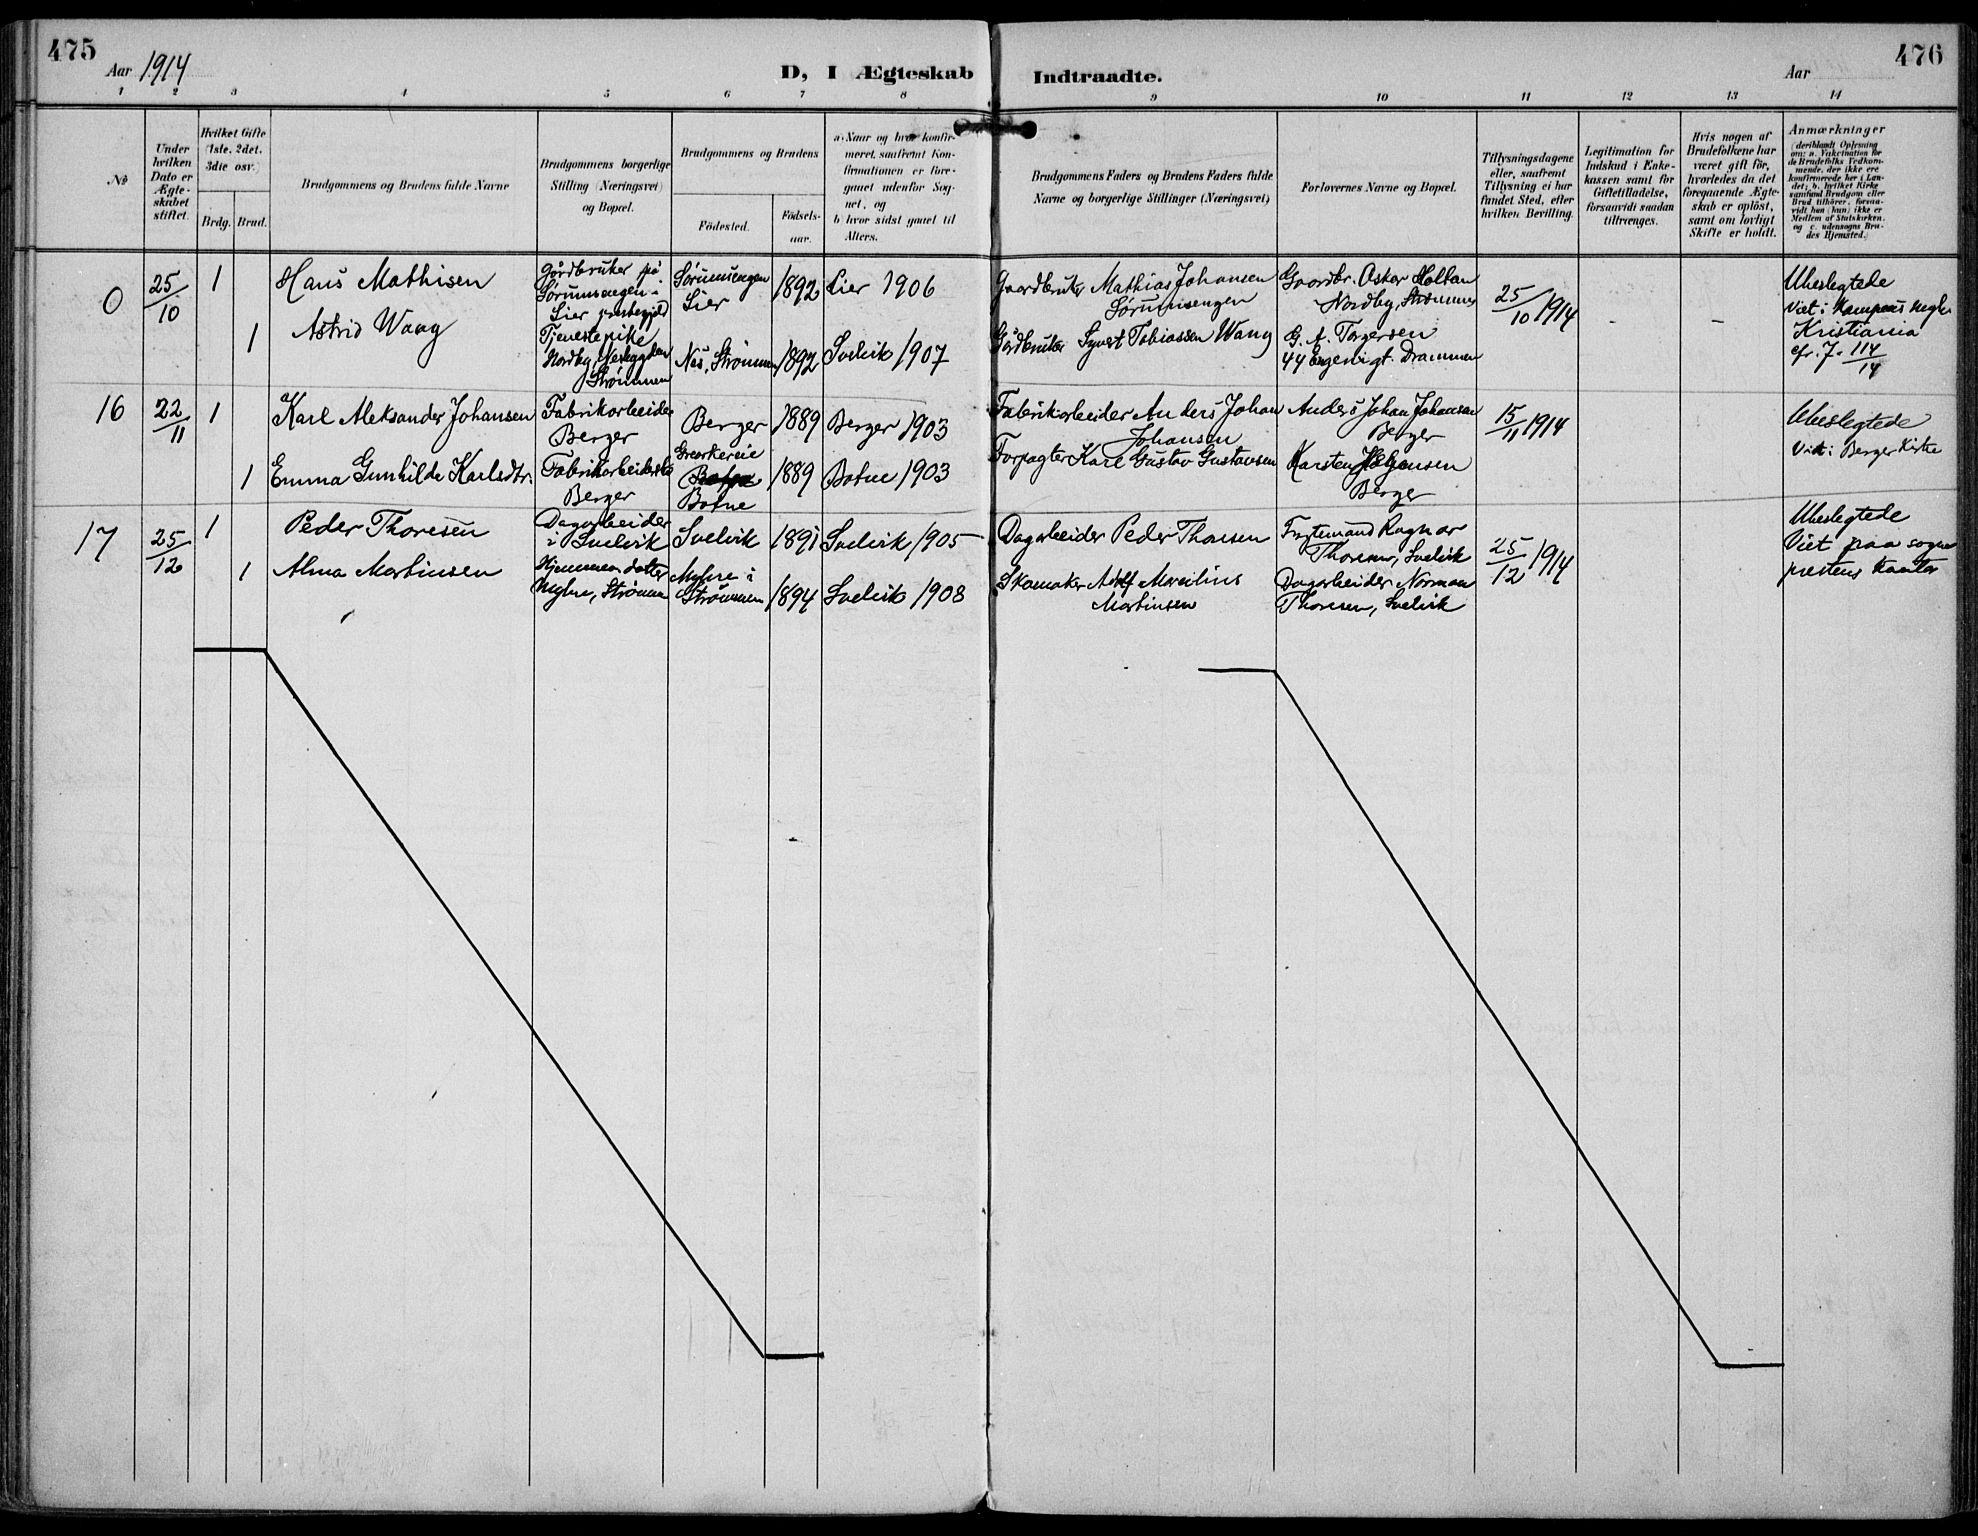 475
Aar 1914
D, I Ægteskab
Indtraadte.
Aar
476
1 2 3 4 5 6 7 8 9 10 11 12 13 14
No
Under
hvilken
Dato er
Ægte-
skabet
stiftet.
Hvilket Gifte
(1ste, 2det,
3die osv.)
Brdg. Brud.
Brudgommens og Brudens fulde Navne
Brudgommens borgerlige
Stilling (Næringsvei)
og Bopæl.
Brudgommens og Brudens
Födested.
Födsels-
aar.
a) Naar og hvor konfir-
meret, saafremt Kon-
firmationen er fore-
gaaet udenfor Sog-
net, og
b) hvor sidst gaaet til
Alters.
Brudgommens Faders og Brudens Faders fulde
Navne og borgerlige Stillinger (Næringsvei)
Forlovernes Navne og Bopæl.
Tillysningsdagene
eller, saafremt
Tillysning ei har
fundet Sted, efter
hvilken Bevilling.
Legitimation for
Indskud i Enke-
kassen samt for
Giftetilladelse,
forsaavidt saadan
tiltrænges.
Hvis nogen af
Brudefolkene har
været gift för,
hvorledes da det
foregaaende Ægte-
skab er oplöst,
samt om lovligt
Skifte er holdt.
Anmærkninger
(deriblandt Oplysning
om: a. Vakcination for
de Brudefolks Vedkom-
mende, der ikke ere
konfirmerede her i Lan-
det; b. hvilket Kirke
samfund Brudgom eller
Brud tilhörer, forsaa-
vidt han (hun) ikke er
Medlem af Statskirken,
og c. udensogns Bru-
des Hjemsted.)
0
25/10
1
Hans Mathisen
Gårdbruker på
Sørumsengen i
Lier prestegjeld
Sørumsengen
Lier
1892
Lier 1906
Gaardbruker Mathias Johansen
Sørumsengen
Gaardbr. Oskar Holtan
Nordby, Strømmen
25/10 1914
Ubeslegtede
Viet i Kampens
Kristiania
cfr. J. 114/14
1
Astrid Waag
Tjenestepike
Nordby, Nesbygden
Strømmen
Nes, Strømmen
1892
Svelvik 1907
Gårdbruker Syvert Tobiassen Wang
G. A. Torgersen
44 Engenigt. Drammen
16
22/11
1
Karl Aleksander Johansen
Fabrikarbeider
Berger
Berger
1889
Berger 1903
Fabrikarbeider Anders Johan
Johansen
Anders Johan Johansen
Berger
15/11 1914
Ubeslegtede
Viet i Berger Kirke
1
Emma Gunhilde Karlsdtr.
Fabrikarbeiderske
Berger
Botne
1889
Botne 1903
Forpagter Karl Gustav Gustavsen
Karsten Helgesen
Berger
17
25/12
1
Peder Thoresen
Dagarbeider
i Svelvik
Svelvik
1891
Svelvik 1905
Dagarbeider Peder Thoresen
Fragtemand Ragnar
Thoresen, Svelvik
25/12 1914
Ubeslegtede
Viet paa sogne
prestens kontor
1
Alma Martinsen
Hjemmev. datter
Myhre, Strømmen
Myhre i
Strømmen
1894
Svelvik 1908
Skomaker Adolf Marelius
Martinsen
Dagarbeider Norman
Thoresen, Svelvik